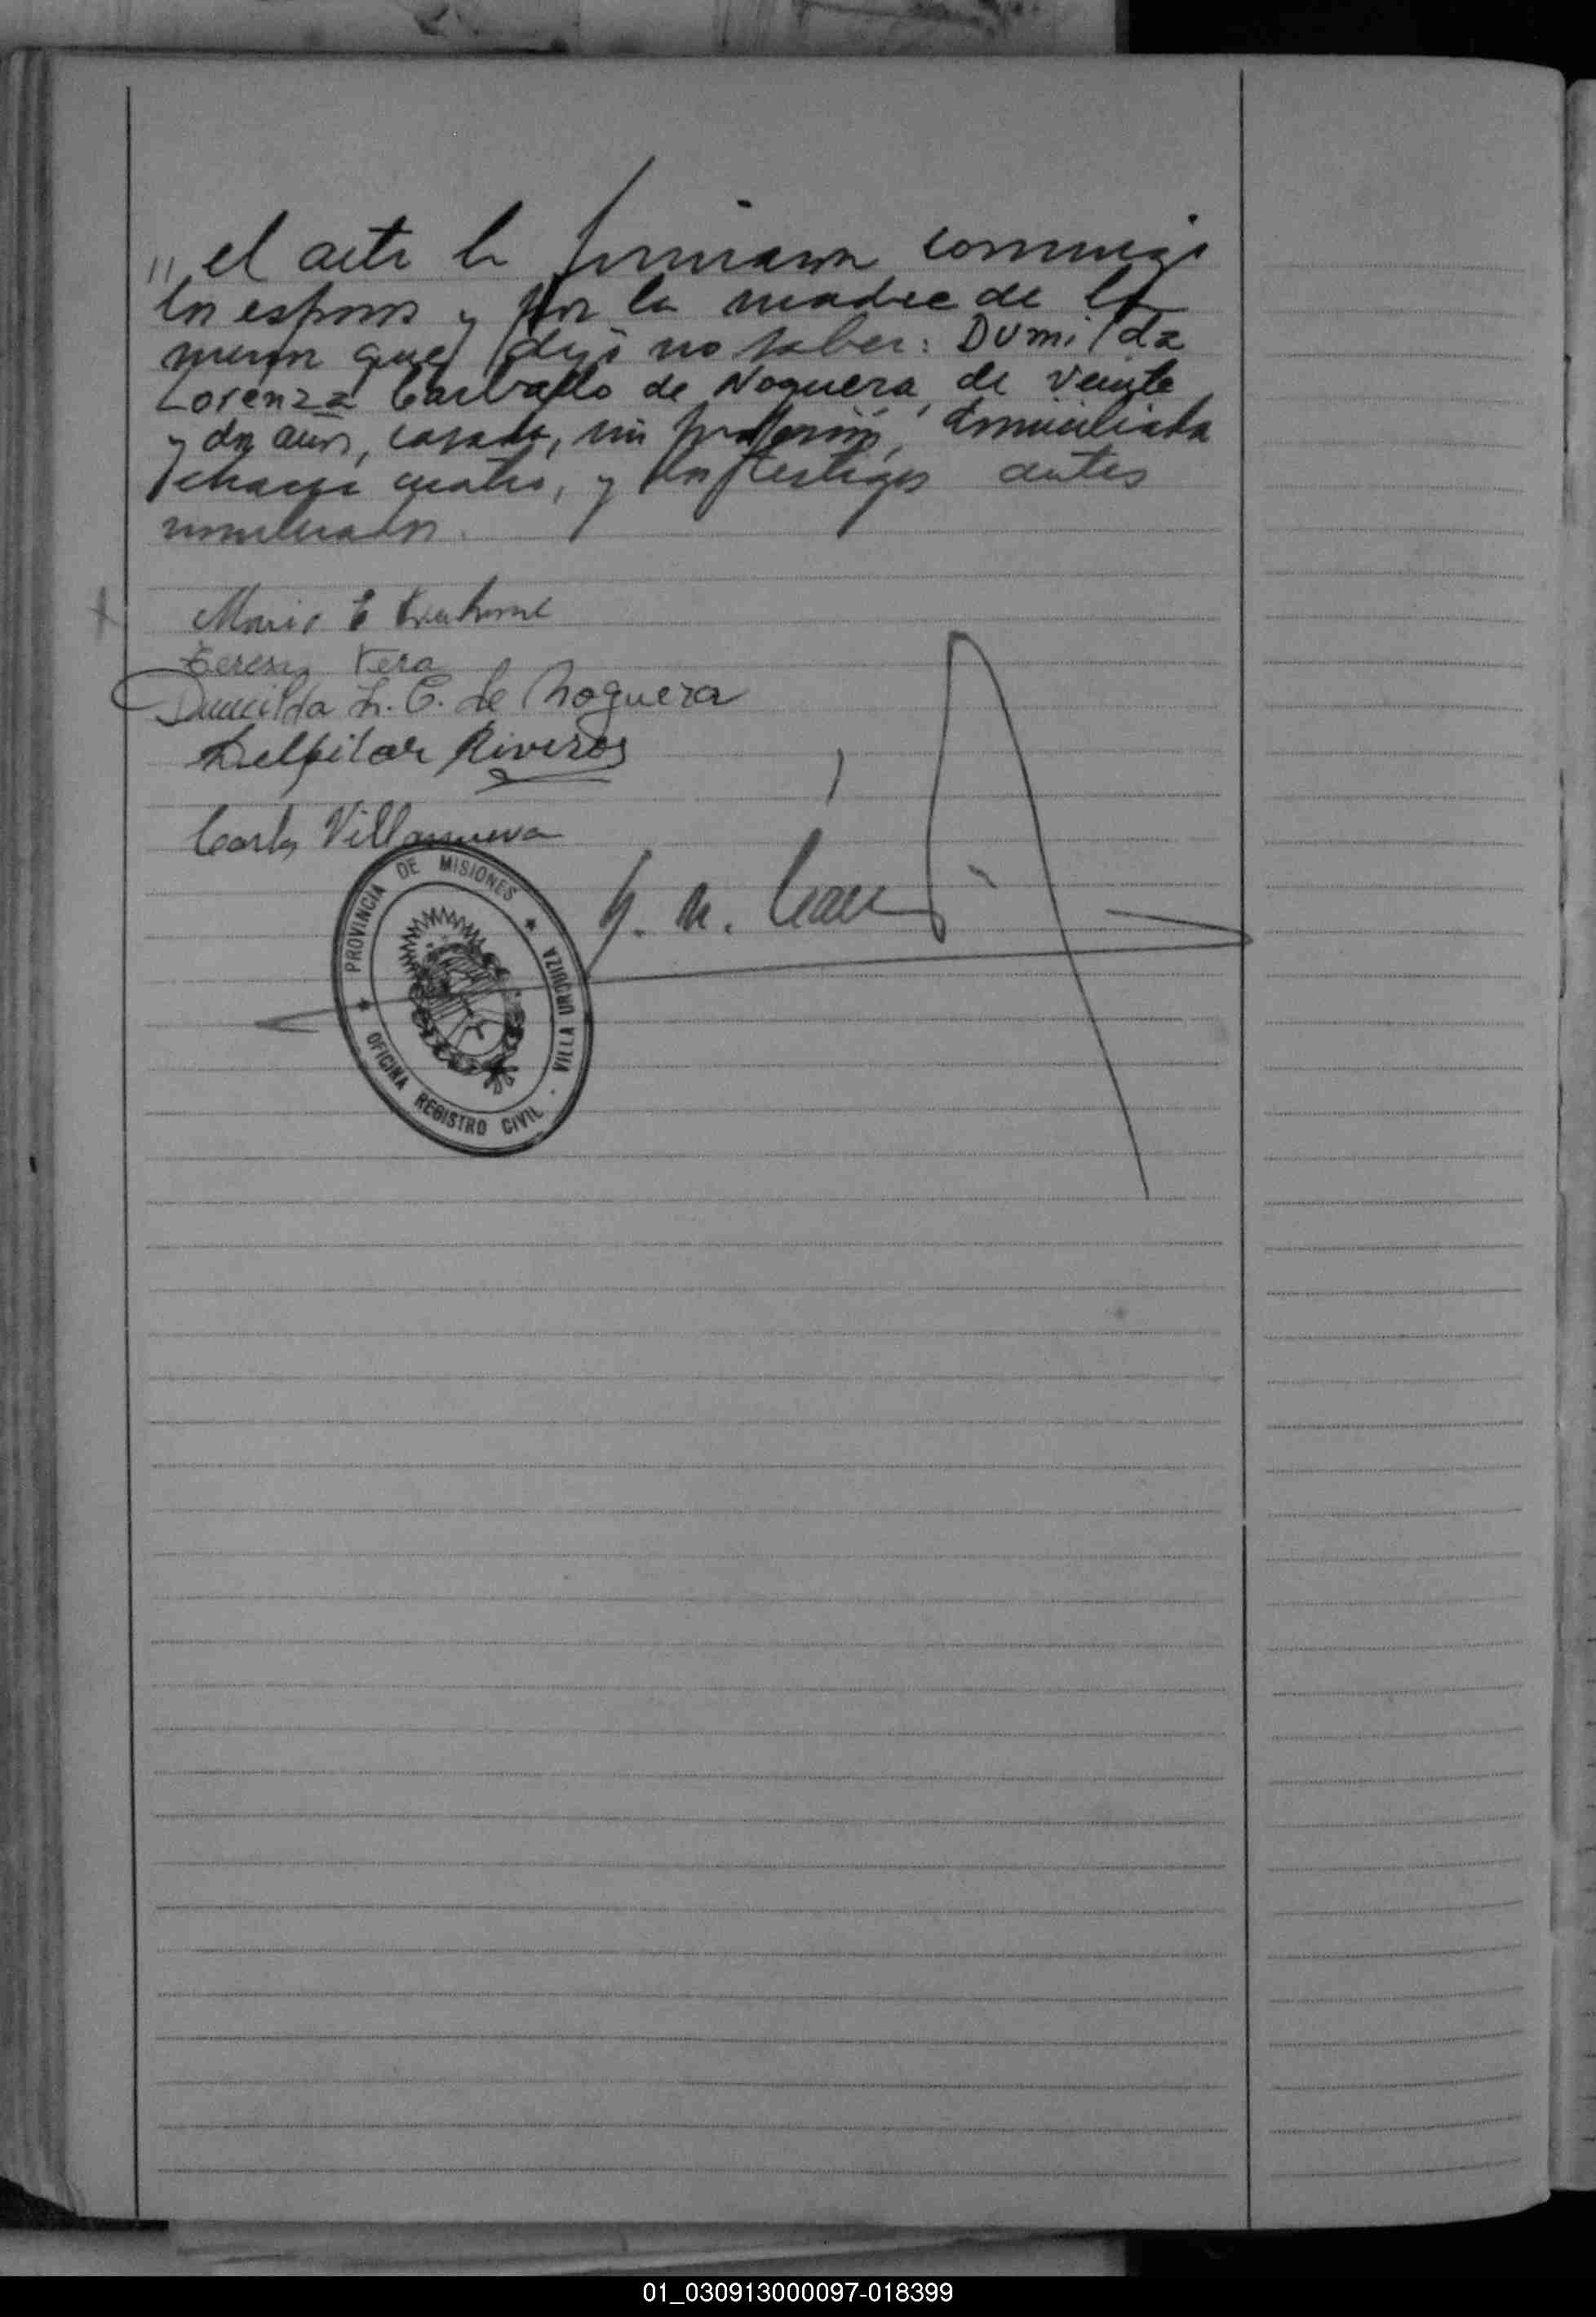 " el acta la firmaron conmigo
los esposos y por la madre de la
menor que dijo no saber: Dumilda
Lorenza Carballo de Noguera, de veinte
y dos años, casada, sin profesión, domiciliada
chacra cuatro, y los testigos antes
nombrados.
Mario E
Teresa Vera
Dumilda L. C. de Noguera
Delpilar Riveros
Carlos Villanueva
PROVINCIA DE MISIONES
VILLA URQUIZA
OFICINA REGISTRO CIVIL
01_030913000097-018399